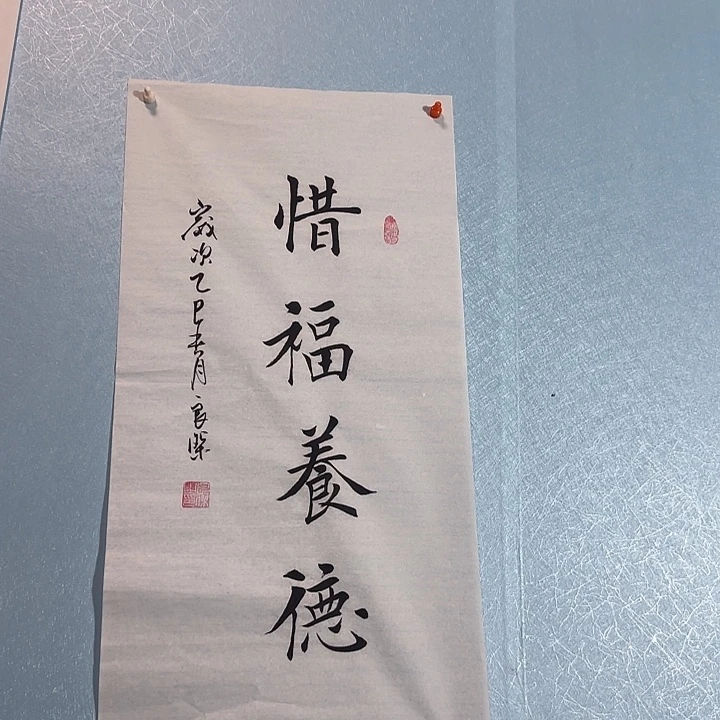 惜福養德
歲次乙巳春月良燦